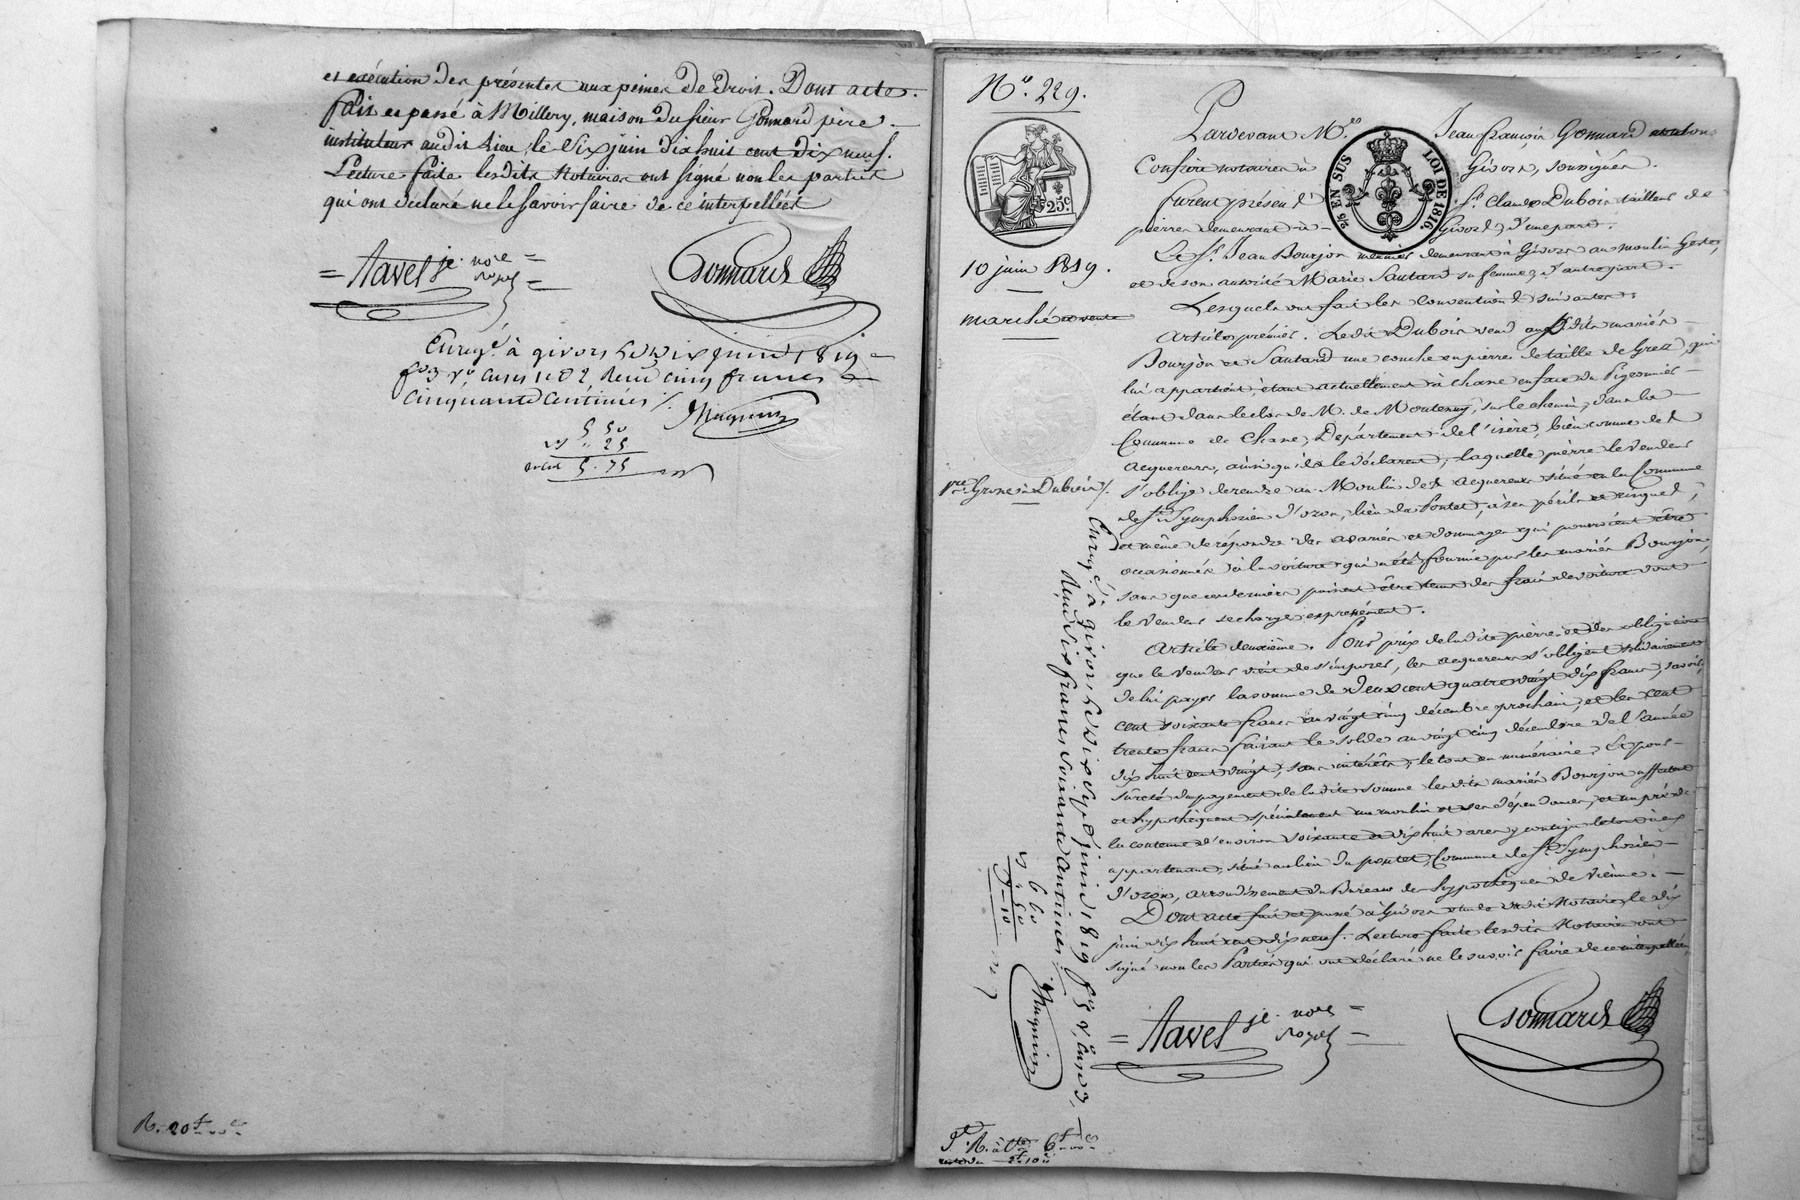 et exécution des présentes aux peines de droit. Dont acte.
fait et passé à Millery, maison du sieur Gonnard père
instituteur audit lieu, le six juin dix huit cent dix neuf.
Lecture faite lesdits Notaires ont signé non les parties
qui ont déclaré ne le savoir faire de ce interpellées
= Favel je. nore =
royal =
Gonnard
Enregé. à givors le dix juin 1819
fo 3 vo, cases 1 et 2, Reçu cinq francs
cinquante centimes
Magnin
5 50
25
5.75
R. 20f
No. 229.
25c
10 juin 1819.
marché et vente
pre. Grosse à Dubois /.
Pardevant Me. Jean françois Gonnard et son
Confrère notaires à Givors, soussignés.
2/5 EN SUS
LOI DE 1816.
furent présents Sr. Claude Dubois tailleur de
pierres demeurant à Givors, d'une part.
Le Sr. Jean Bourjon meunier demeurant à Givors au moulin
et de son autorité Marie Sautard sa femme, d'autre part.
Lesquels ont fait les conventions suivantes :
Article premier. Ledit Dubois vend auxdits mariés
Bourjon et Sautard une couche en pierre de taille de Grez, qui
lui appartient, étant actuellement à chane en face du Pigeonnier
étant dans le clos de M. de Montemy, sur le chemin, dans la
Commune de Chane, Département de l'isère, bien connue des
acquereurs, ainsi qu'ils le déclarent, laquelle pierre le vendeur
s'oblige de rendre au Moulin des acquereurs situé en la Commune
de St. Symphorien d'ozon, lieu du Pontet, à ses périls et risques,
et même de répondre des avaries et dommages qui pourroient être
occasionnés à la voiture qui a été fournie par les mariés Bourjon,
sans que ces derniers puissent être tenus des frais de voiture dont
le vendeur se charge expressément.
Article deuxième. Pour prix de ladite pierre et des obligations
que le vendeur vient de s'imposer, les acquereurs s'obligent solidairement
de lui payer la somme de deux cent quatre vingt dix francs, savoir,
cent soixante francs au vingt cinq décembre prochain, et les cent
trente francs faisant le solde au vingt cinq décembre de l'année
dix huit cent vingt, sans intérêts, le tout en numéraire, Et pour
sûreté du payement de ladite somme lesdits mariés Bourjon affectent
et hypothèquent spécialement un moulin et ses dépendances, et un pré de
la contenue d'environ soixante et dix huit ares y contigu le tout à eux
appartenant, situé au lieu du pontet, Commune de St. Symphorien
d'ozon, arrondissement du Bureau des hypothèques de Vienne.
Dont acte fait et passé à Givors étude dudit Notaire, le dix
juin dix huit cent dix neuf. Lecture faite lesdits Notaires ont
signé non les Parties qui ont déclaré ne le savoir faire de ce interpellées
= Favel je. nore =
royal =
Gonnard
Enregé. à givors le dix sept juin 1819 fo 5 vo, case 3,
Reçu six francs soixante centimes
Magnin
6 60
50
7-10